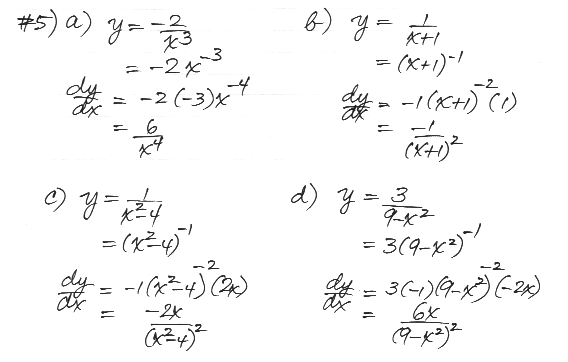 #5) a) y = -2/x³
= -2x⁻³
dy/dx = -2(-3)x⁻⁴
= 6/x⁴
b) y = 1/(x+1)
= (x+1)⁻¹
dy/dx = -1(x+1)⁻²(1)
= -1/(x+1)²
c) y = 1/(x²-4)
= (x²-4)⁻¹
dy/dx = -1(x²-4)⁻²(2x)
= -2x/(x²-4)²
d) y = 3/(9-x²)
= 3(9-x²)⁻¹
dy/dx = 3(-1)(9-x²)⁻²(-2x)
= 6x/(9-x²)²